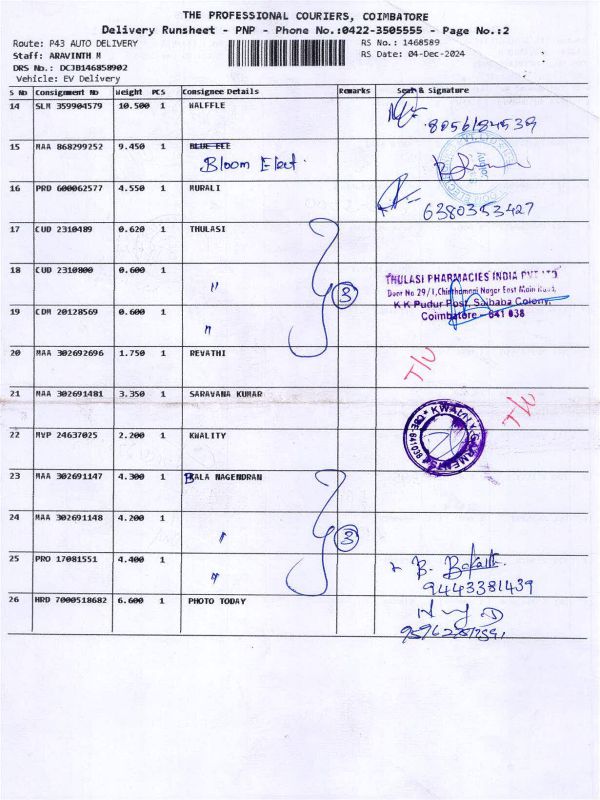 THE PROFESSIONAL COURIERS, COIMBATORE
Delivery Runsheet - PNP - Phone No.:0422-3505555 - Page No.:2
Route: P43 AUTO DELIVERY
Staff: ARAVINTH M
DRS No.: DCJB146858902
Vehicle: EV Delivery
RS No.: 1468589
RS Date: 04-Dec-2024
S No Consignment No Weight PCS Consignee Details Remarks Seal & Signature
14 SLM 359904579 10.500 1 WALFFLE
8056184539
15 MAA 868299252 9.450 1 BLUE ETE
Bloom Elect
16 PRD 600062577 4.550 1 MURALI
6380353427
17 CUD 2310489 0.620 1 THULASI
18 CUD 2310800 0.600 1 "
3
THULASI PHARMACIES INDIA PVT LTD
Door No 29/1, Chinthamani Nagar East Main Road,
K K Pudur Post, Saibaba Colony,
Coimbatore - 641 038
19 CDM 20128569 0.600 1 "
20 MAA 302692696 1.750 1 REVATHI
T/U
21 MAA 302691481 3.350 1 SARAVANA KUMAR
T/U
22 MVP 24637025 2.200 1 KWALITY
23 MAA 302691147 4.300 1 BALA NAGENDRAN
24 MAA 302691148 4.200 1 "
3
25 PRO 17081551 4.400 1 "
9443381439
26 HRD 7000518682 6.600 1 PHOTO TODAY